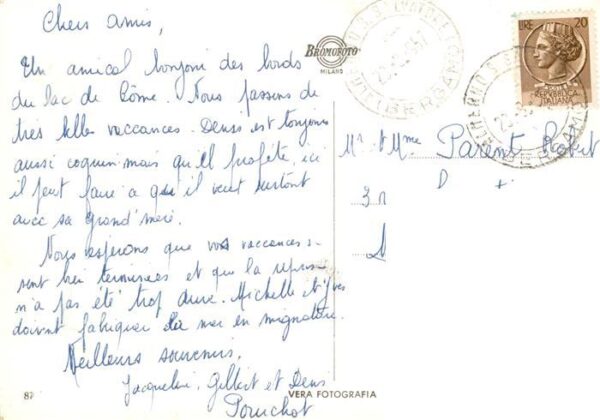 Chers amis,
Un amical bonjour des bords
du lac de Côme. Nous passons de
très belles vaccances. Denis est toujours
aussi coquin mais qu'il profite, ici
il peut faire a qu il veut surtout
avec sa grand'mère.
Nous espérons que vos vaccances se
sont bien terminées et que la reprise
n'a pas été trop dure. Michelle et Yves
doivent fabriquer la mer en mignature.
Meilleurs souvenirs.
Jacqueline, Gilbert et Denis
Pouchot
BROMOFOTO
MILANO
LIRE 20
REPUBBLICA
ITALIANA
BERGAMO
Mr et Mme Parent Robert
VERA FOTOGRAFIA